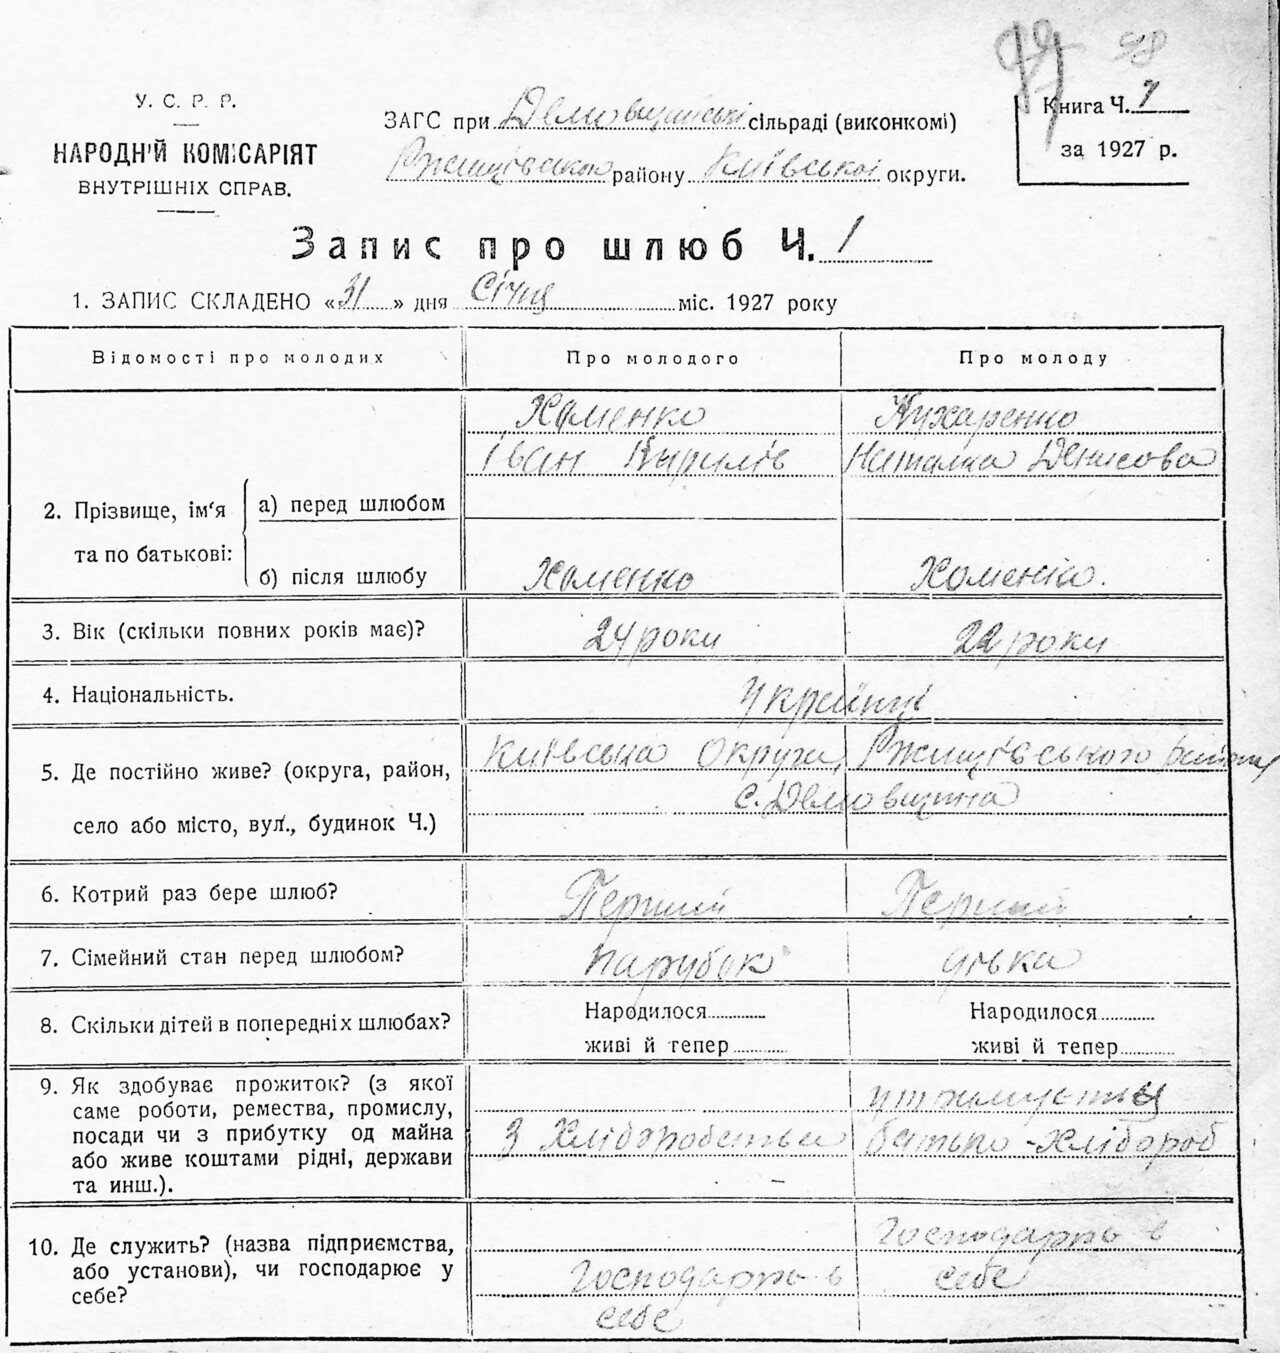 98
У. С. Р. Р.
НАРОДНІЙ КОМІСАРІЯТ
ВНУТРІШНІХ СПРАВ.
ЗАГС при Демовщинські сільраді (виконкомі)
Ржищівського району Київської округи.
Книга Ч. 1
за 1927 р.
Запис про шлюб Ч. 1
1. ЗАПИС СКЛАДЕНО «31» дня Січня міс. 1927 року
Відомості про молодих
Про молодого
Про молоду
2. Прізвище, ім'я та по батькові:
а) перед шлюбом
Хоменко
Іван Кирилів
Кухаренко
Наталка Денисова
б) після шлюбу
Хоменко
Хоменко.
3. Вік (скільки повних років має)?
24 роки
22 роки
4. Національність.
Українці
5. Де постійно живе? (округа, район,
село або місто, вул., будинок Ч.)
Київська Округа, Ржищівського Району
с. Демовщина
6. Котрий раз бере шлюб?
Перший
Перший
7. Сімейний стан перед шлюбом?
парубок
дівка
8. Скільки дітей в попередніх шлюбах?
Народилося
живі й тепер
Народилося
живі й тепер
9. Як здобуває прожиток? (з якої
саме роботи, ремества, промислу,
посади чи з прибутку од майна
або живе коштами рідні, держави
та инш.).
З Хліборобства
утримується
батько-хлібороб
10. Де служить? (назва підприємства,
або установи), чи господарює у
себе?
Господарть в
себе
Господарть в
себе